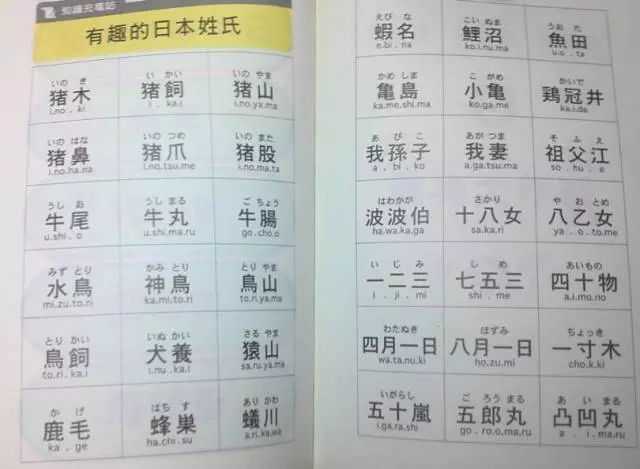 知識充電站
有趣的日本姓氏
いの き いかい いの やま
猪木 猪飼 猪山
i.no.ki i.ka.i i.no.ya.ma
いの はな いの つめ いの また
猪鼻 猪爪 猪股
i.no.ha.na i.no.tsu.me i.no.ma.ta
うし お うし まる ご ちょう
牛尾 牛丸 牛腸
u.shi.o u.shi.ma.ru go.cho.o
みず とり かみ とり とり やま
水鳥 神鳥 鳥山
mi.zu.to.ri ka.mi.to.ri to.ri.ya.ma
とり かい いぬ かい さる やま
鳥飼 犬養 猿山
to.ri.ka.i i.nu.ka.i sa.ru.ya.ma
か げ はち す あり かわ
鹿毛 蜂巣 蟻川
ka.ge ha.chi.su a.ri.ka.wa
えび な こい ぬま うお た
蝦名 鯉沼 魚田
e.bi.na ko.i.nu.ma u.o.ta
かめ しま こ がめ かいで
亀島 小亀 鶏冠井
ka.me.shi.ma ko.ga.me ka.i.de
あ び こ あが つま そ ふ え
我孫子 我妻 祖父江
a.bi.ko a.ga.tsu.ma so.hu.e
はわかが さかり や お とめ
波波伯 十八女 八乙女
ha.wa.ka.ga sa.ka.ri ya.o.to.me
い じ み し め あいもの
一二三 七五三 四十物
i.ji.mi shi.me a.i.mo.no
わたぬき ほずみ ちょっき
四月一日 八月一日 一寸木
wa.ta.nu.ki ho.zu.mi cho.k.ki
いがらし ご ろう まる あ い まる
五十嵐 五郎丸 凸凹丸
i.ga.ra.shi go.ro.o.ma.ru a.i.ma.ru